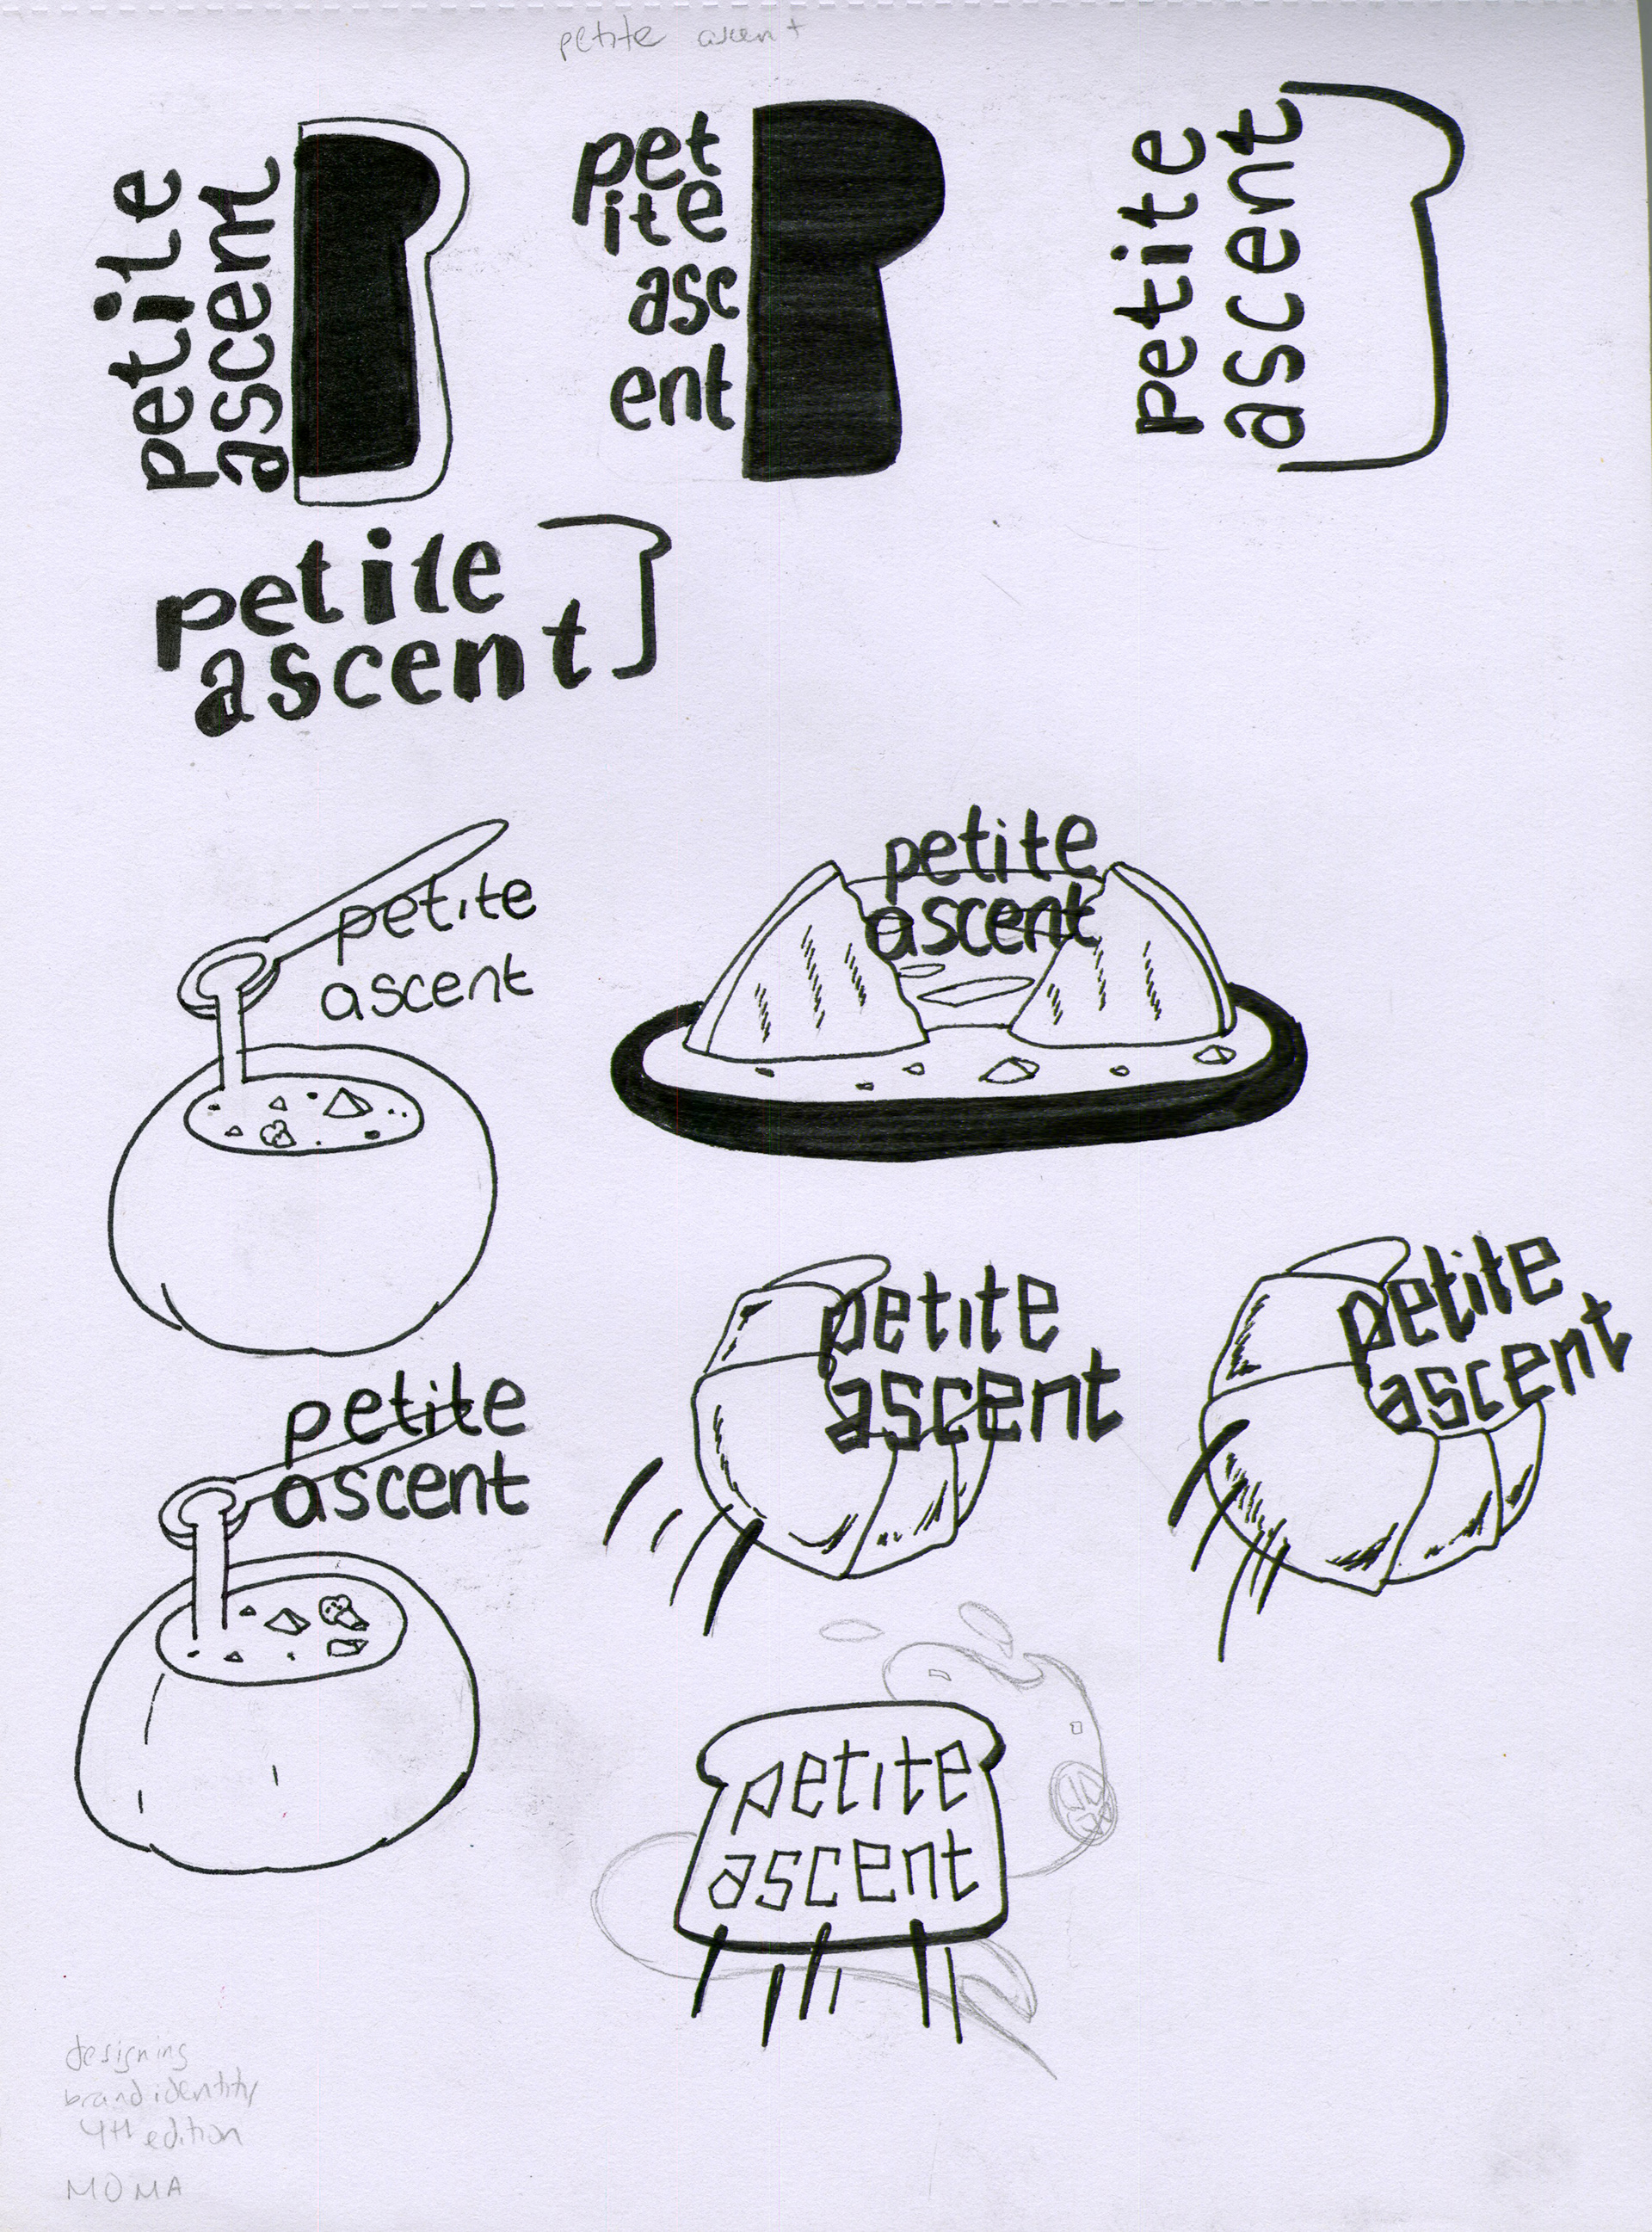 petite ascent
petite
ascent
pet
ite
asc
ent
petite
ascent
petite
ascent
petite
ascent
petite
ascent
petite
ascent
petite
ascent
petite
ascent
petite
ascent
designing
brand identity
4th edition
MOMA